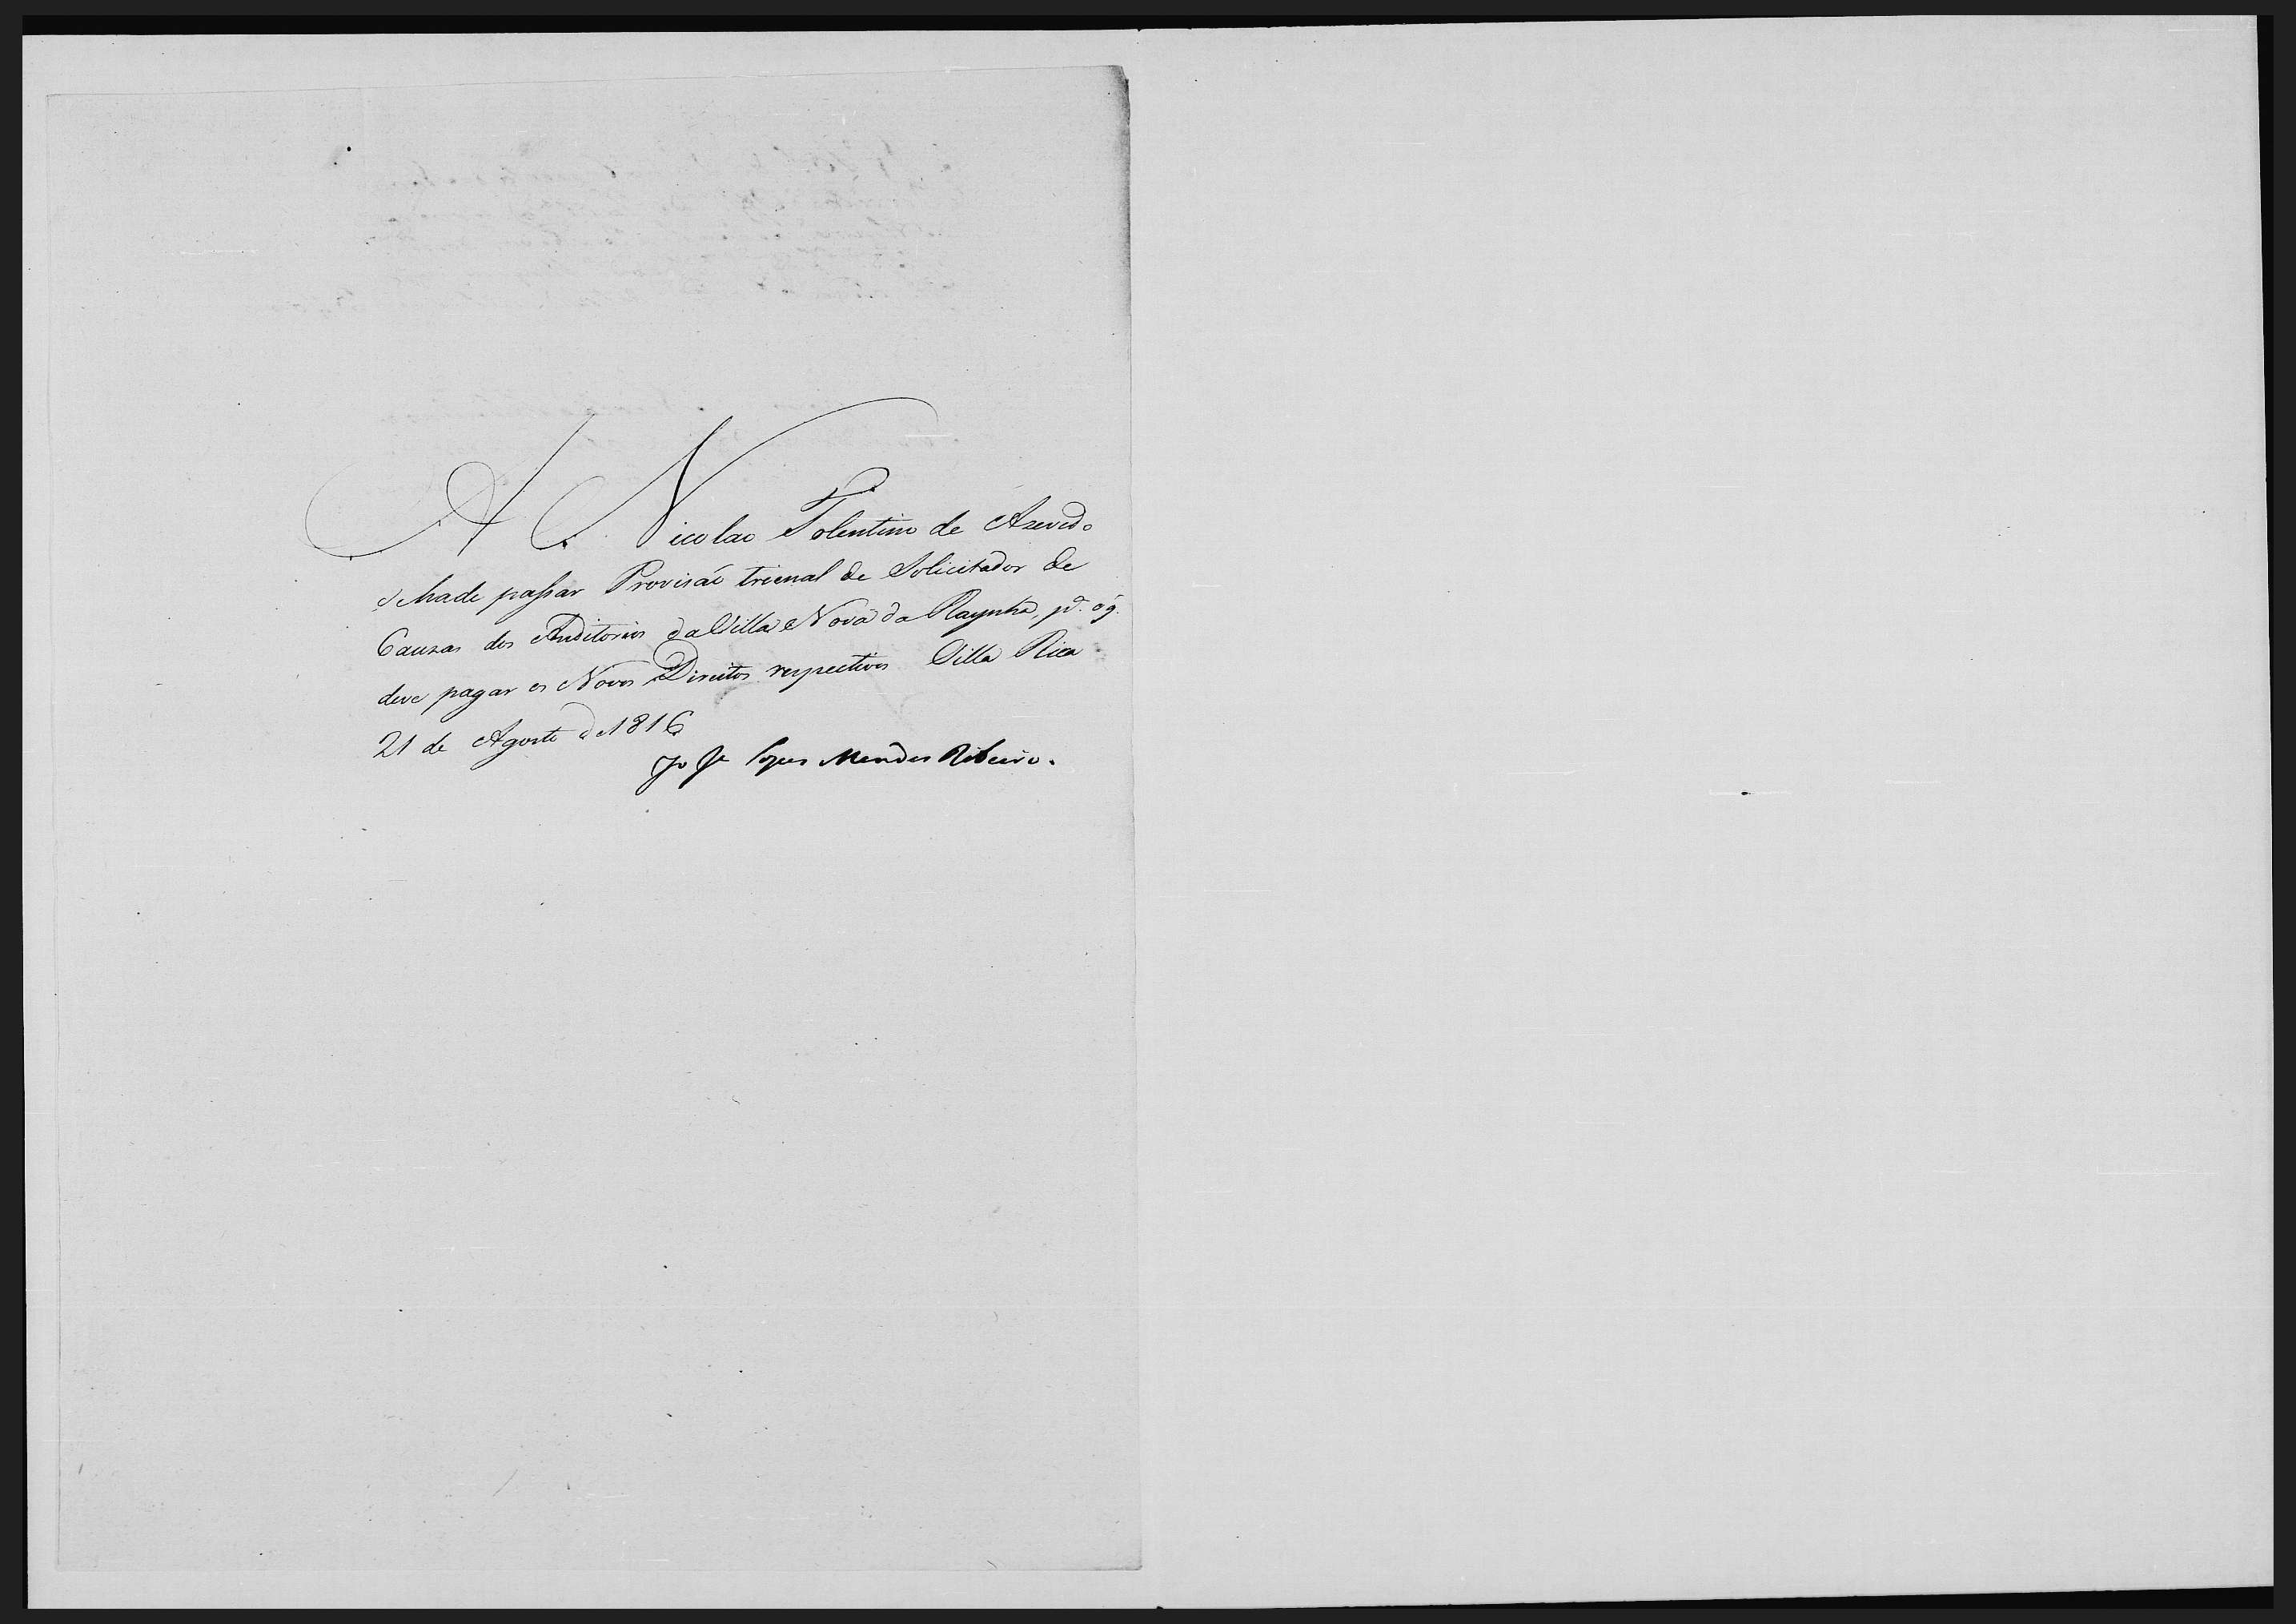 A Nicolao Tolentino de Azevedo
se hade passar Provisaõ trienal de Solicitador de
Causas dos Auditorios da Villa Nova da Raynha, p.ª o q.
deve pagar os Novos Direitos respectivos Villa Rica
21 de Agosto de 1816
Joze Lopes Mendes Ribeiro.